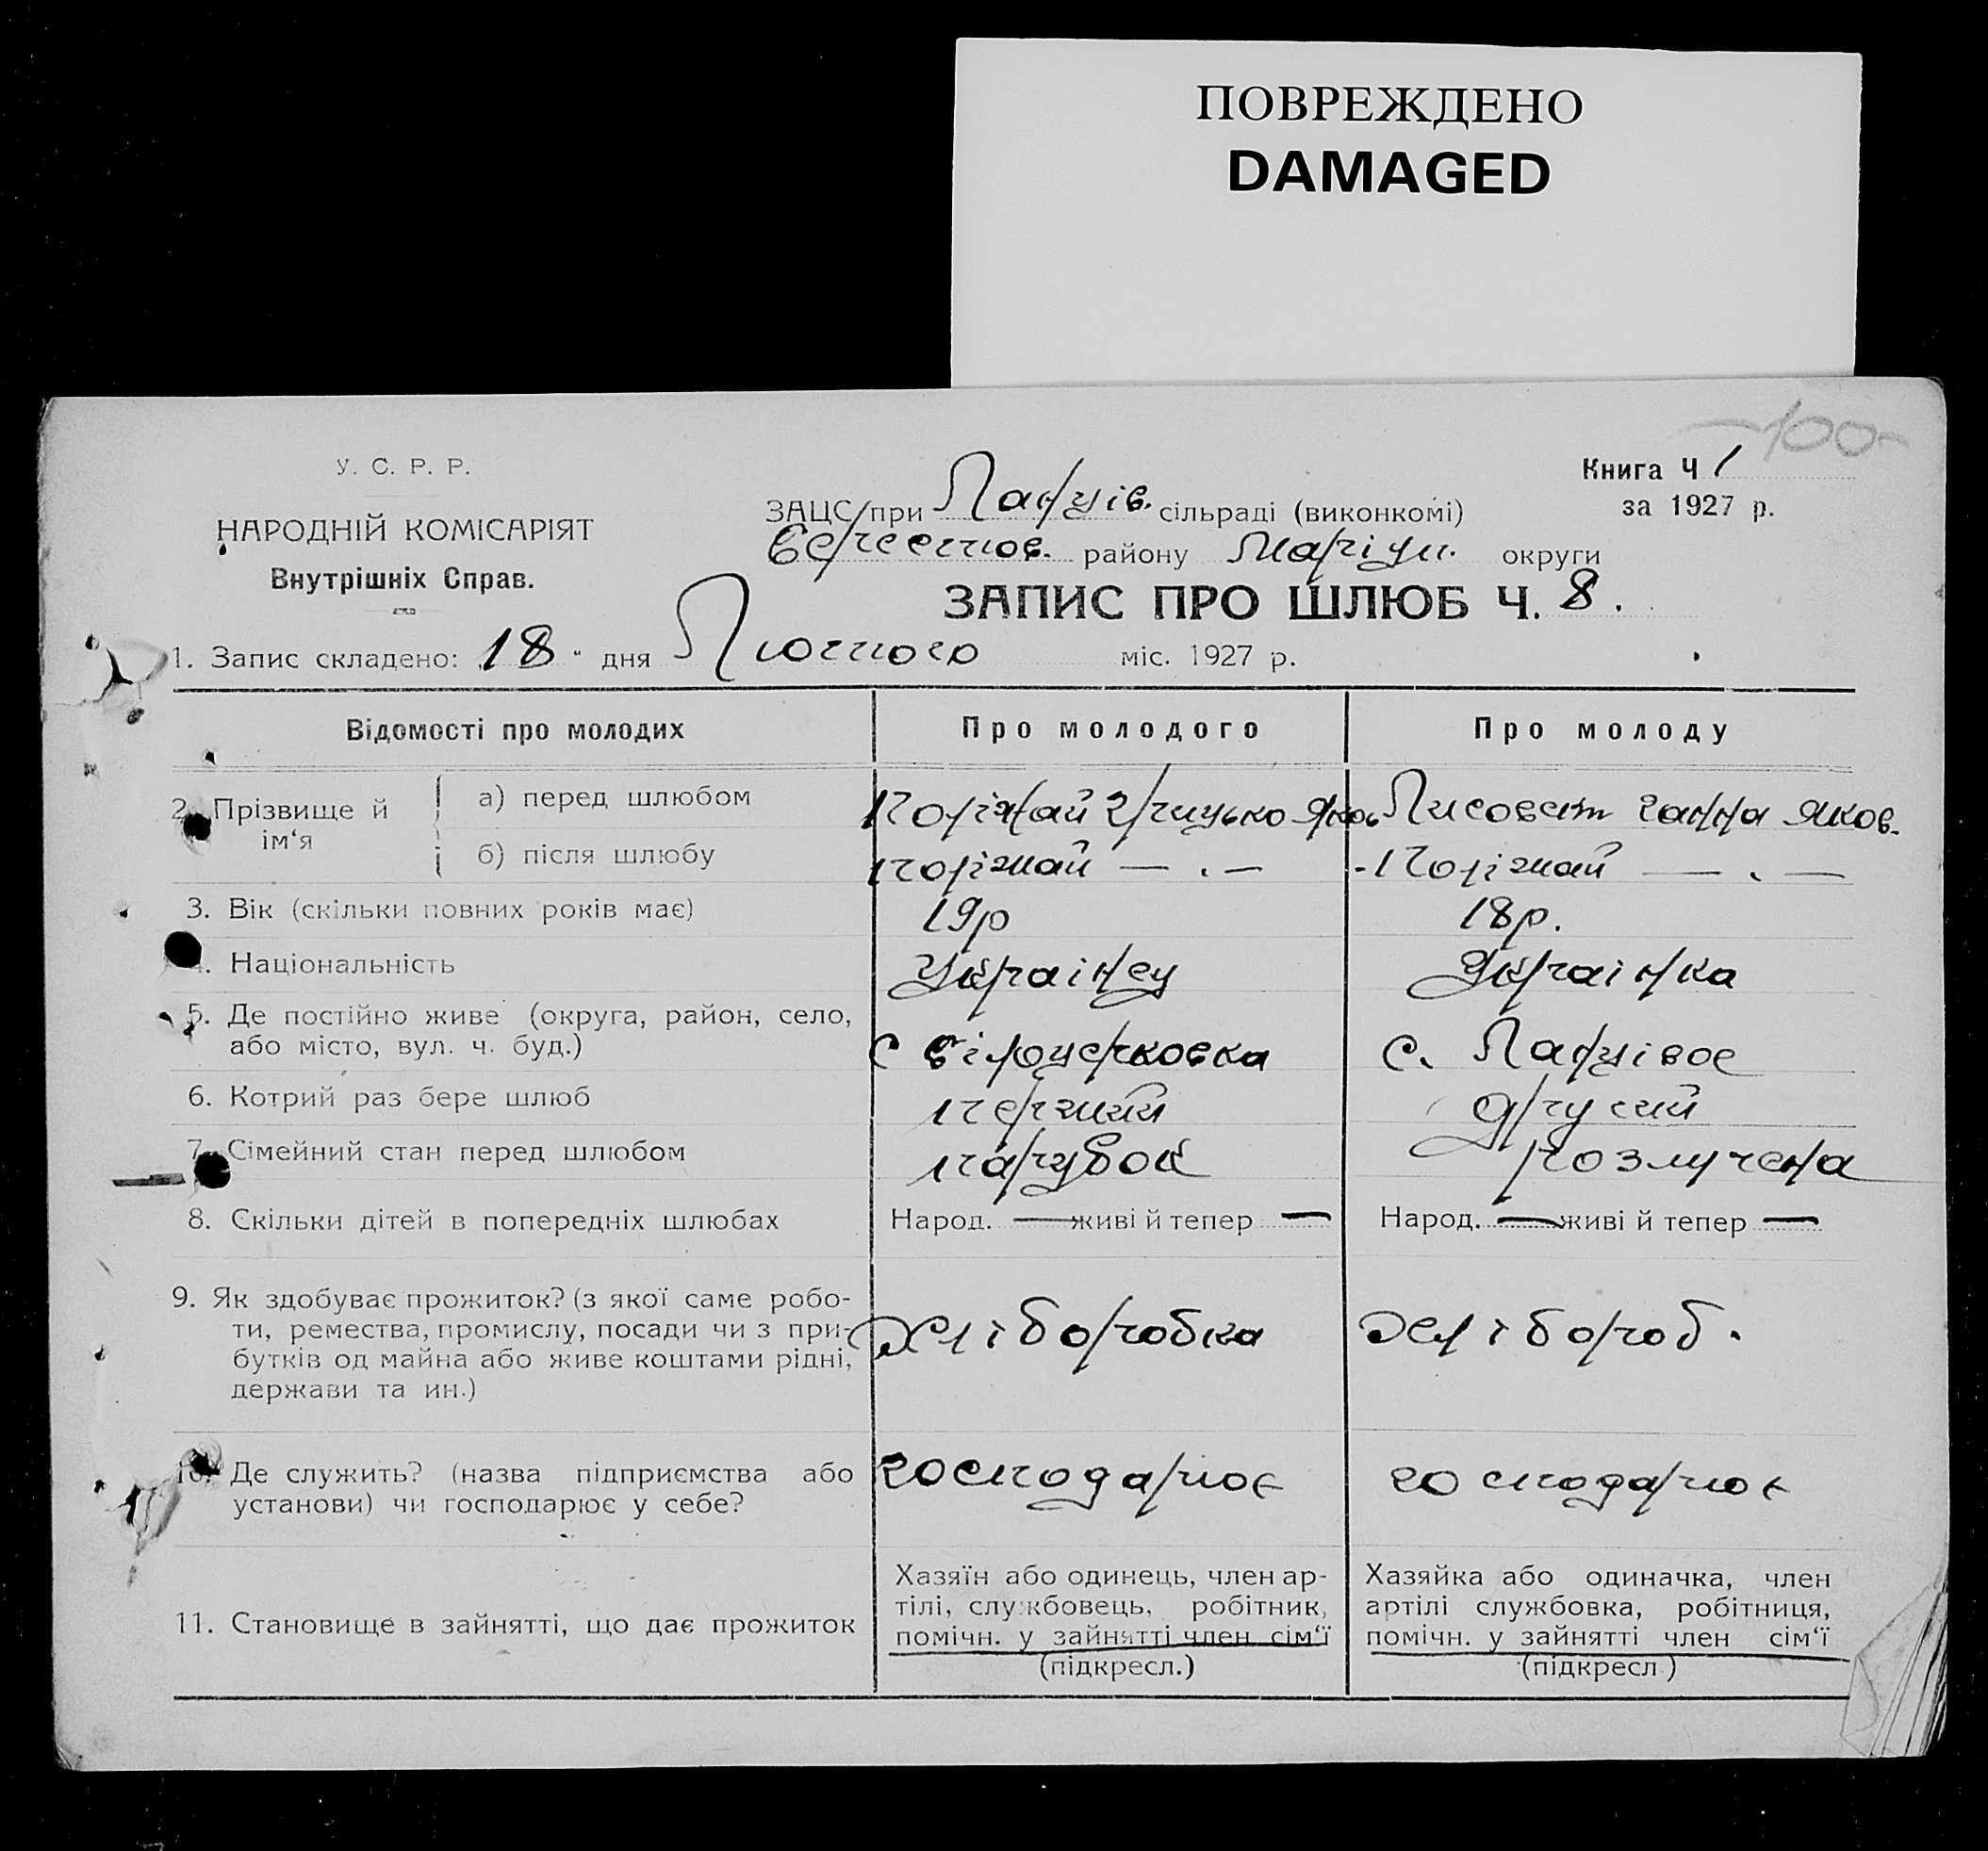 ПОВРЕЖДЕНО
DAMAGED
-100-
У. С. Р. Р.
НАРОДНІЙ КОМІСАРІЯТ
Внутрішніх Справ.
ЗАЦС при Ланців. сільраді (виконкомі)
районy Маріуп. округи
Книга Ч 1
за 1927 р.
ЗАПИС ПРО ШЛЮБ Ч. 8.
1. Запис складено: 18 " дня Лютого міс. 1927 р.
Відомості про молодих Про молодого Про молоду
2. Прізвище й ім‘я
а) перед шлюбом Поріжай Грицько Яков Лисовет Ганна Яков.
б) після шлюбу Поріжай — . — - Поріжай — . —
3. Вік (скільки повних років має) 19р 18р.
4. Національність Українец Українка
5. Де постійно живе (округа, район, село, або місто, вул. ч. буд.) с Білоцерковка с. Ланцівое
6. Котрий раз бере шлюб перший другий
7. Сімейний стан перед шлюбом парубок розлучена
8. Скільки дітей в попередніх шлюбах Народ. — живі й тепер — Народ. — живі й тепер —
9. Як здобуває прожиток? (з якої саме робо-
ти, ремества, промислу, посади чи з при-
бутків од майна або живе коштами рідні,
держави та ин.)
Хліборобка Хлібороб.
10. Де служить? (назва підприємства або
установи) чи господарює у себе?
господарює господарює
11. Становище в зайнятті, що дає прожиток
Хазяїн або одинець, член ар-
тілі, службовець, робітник,
помічн. у зайнятті член сім‘ї
(підкресл.)
Хазяйка або одиначка, член
артілі службовка, робітниця,
помічн. у зайнятті член сім‘ї
(підкресл.)